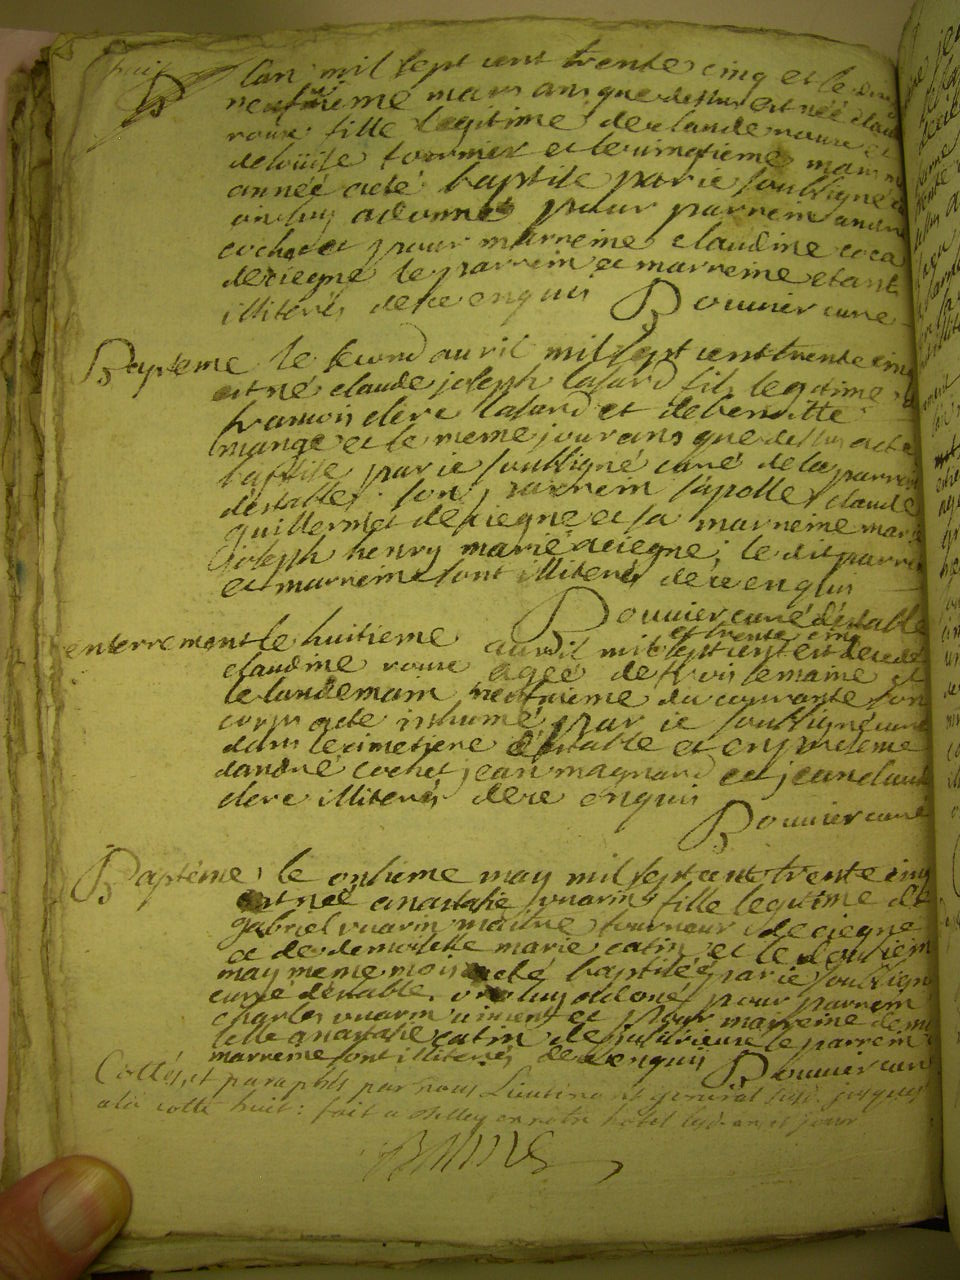 huit
lan mil sept cent trente cinq et le
neufvieme mars an que dessus est néé
rouse fille legitime de claude et
de tournier et le vintieme mars
année a eté baptisé par ie soubsigné
on luy a donné pour parrein andré
cochet et pour marreine claudine
de ciegne le parrein et marreine etant
illiterés de ce enquis Bouvier curé
Bapteme le second avril mil sept cent trente cinq
est né claude joseph lasard fils legitime
francois clere lasard et de benoitte
mange et le meme jour an que dessus a eté
baptisé par ie soubsigné curé de la parroi
destable. son parrein sapolle claude
guillermet de ciegne et sa marreine marie
joseph henry marie de ciegne; le dit parrein
et marreine sont illiterés de ce enquis
Bouvier curé destable
enterrement le huitieme avril mil sept cent et trente cinq est decedé
claudine rouse agéé de trois semaine et
le landemain neufvieme du courant son
corps a eté inhumé par ie soubsigné curé
dans le cimetiere destable et en presence
dandré cochet jean magnard et jean claude
clere illiterés de ce enquis
Bouvier curé
Baptéme le onsieme may mil sept cent trente cinq
est néé anastasie vuarin fille legitime de
gabriel vuarin maitre tourneur de ciegne
et de demoiselle marie catin et le dousiem
may meme mois a eté baptiséé par ie soubsign
curé destable. on luy a doné pour parrein
charles vuarin et pour marreine demoi
selle anastasie catin de le parrein
marreine sont illiterés de ce enquis Bouvier curé
Cottés, et paraphés par nous Lieutenant general susd. jusques
a la cotte huit: fait a Belley en notre hotel lesd. an et jour